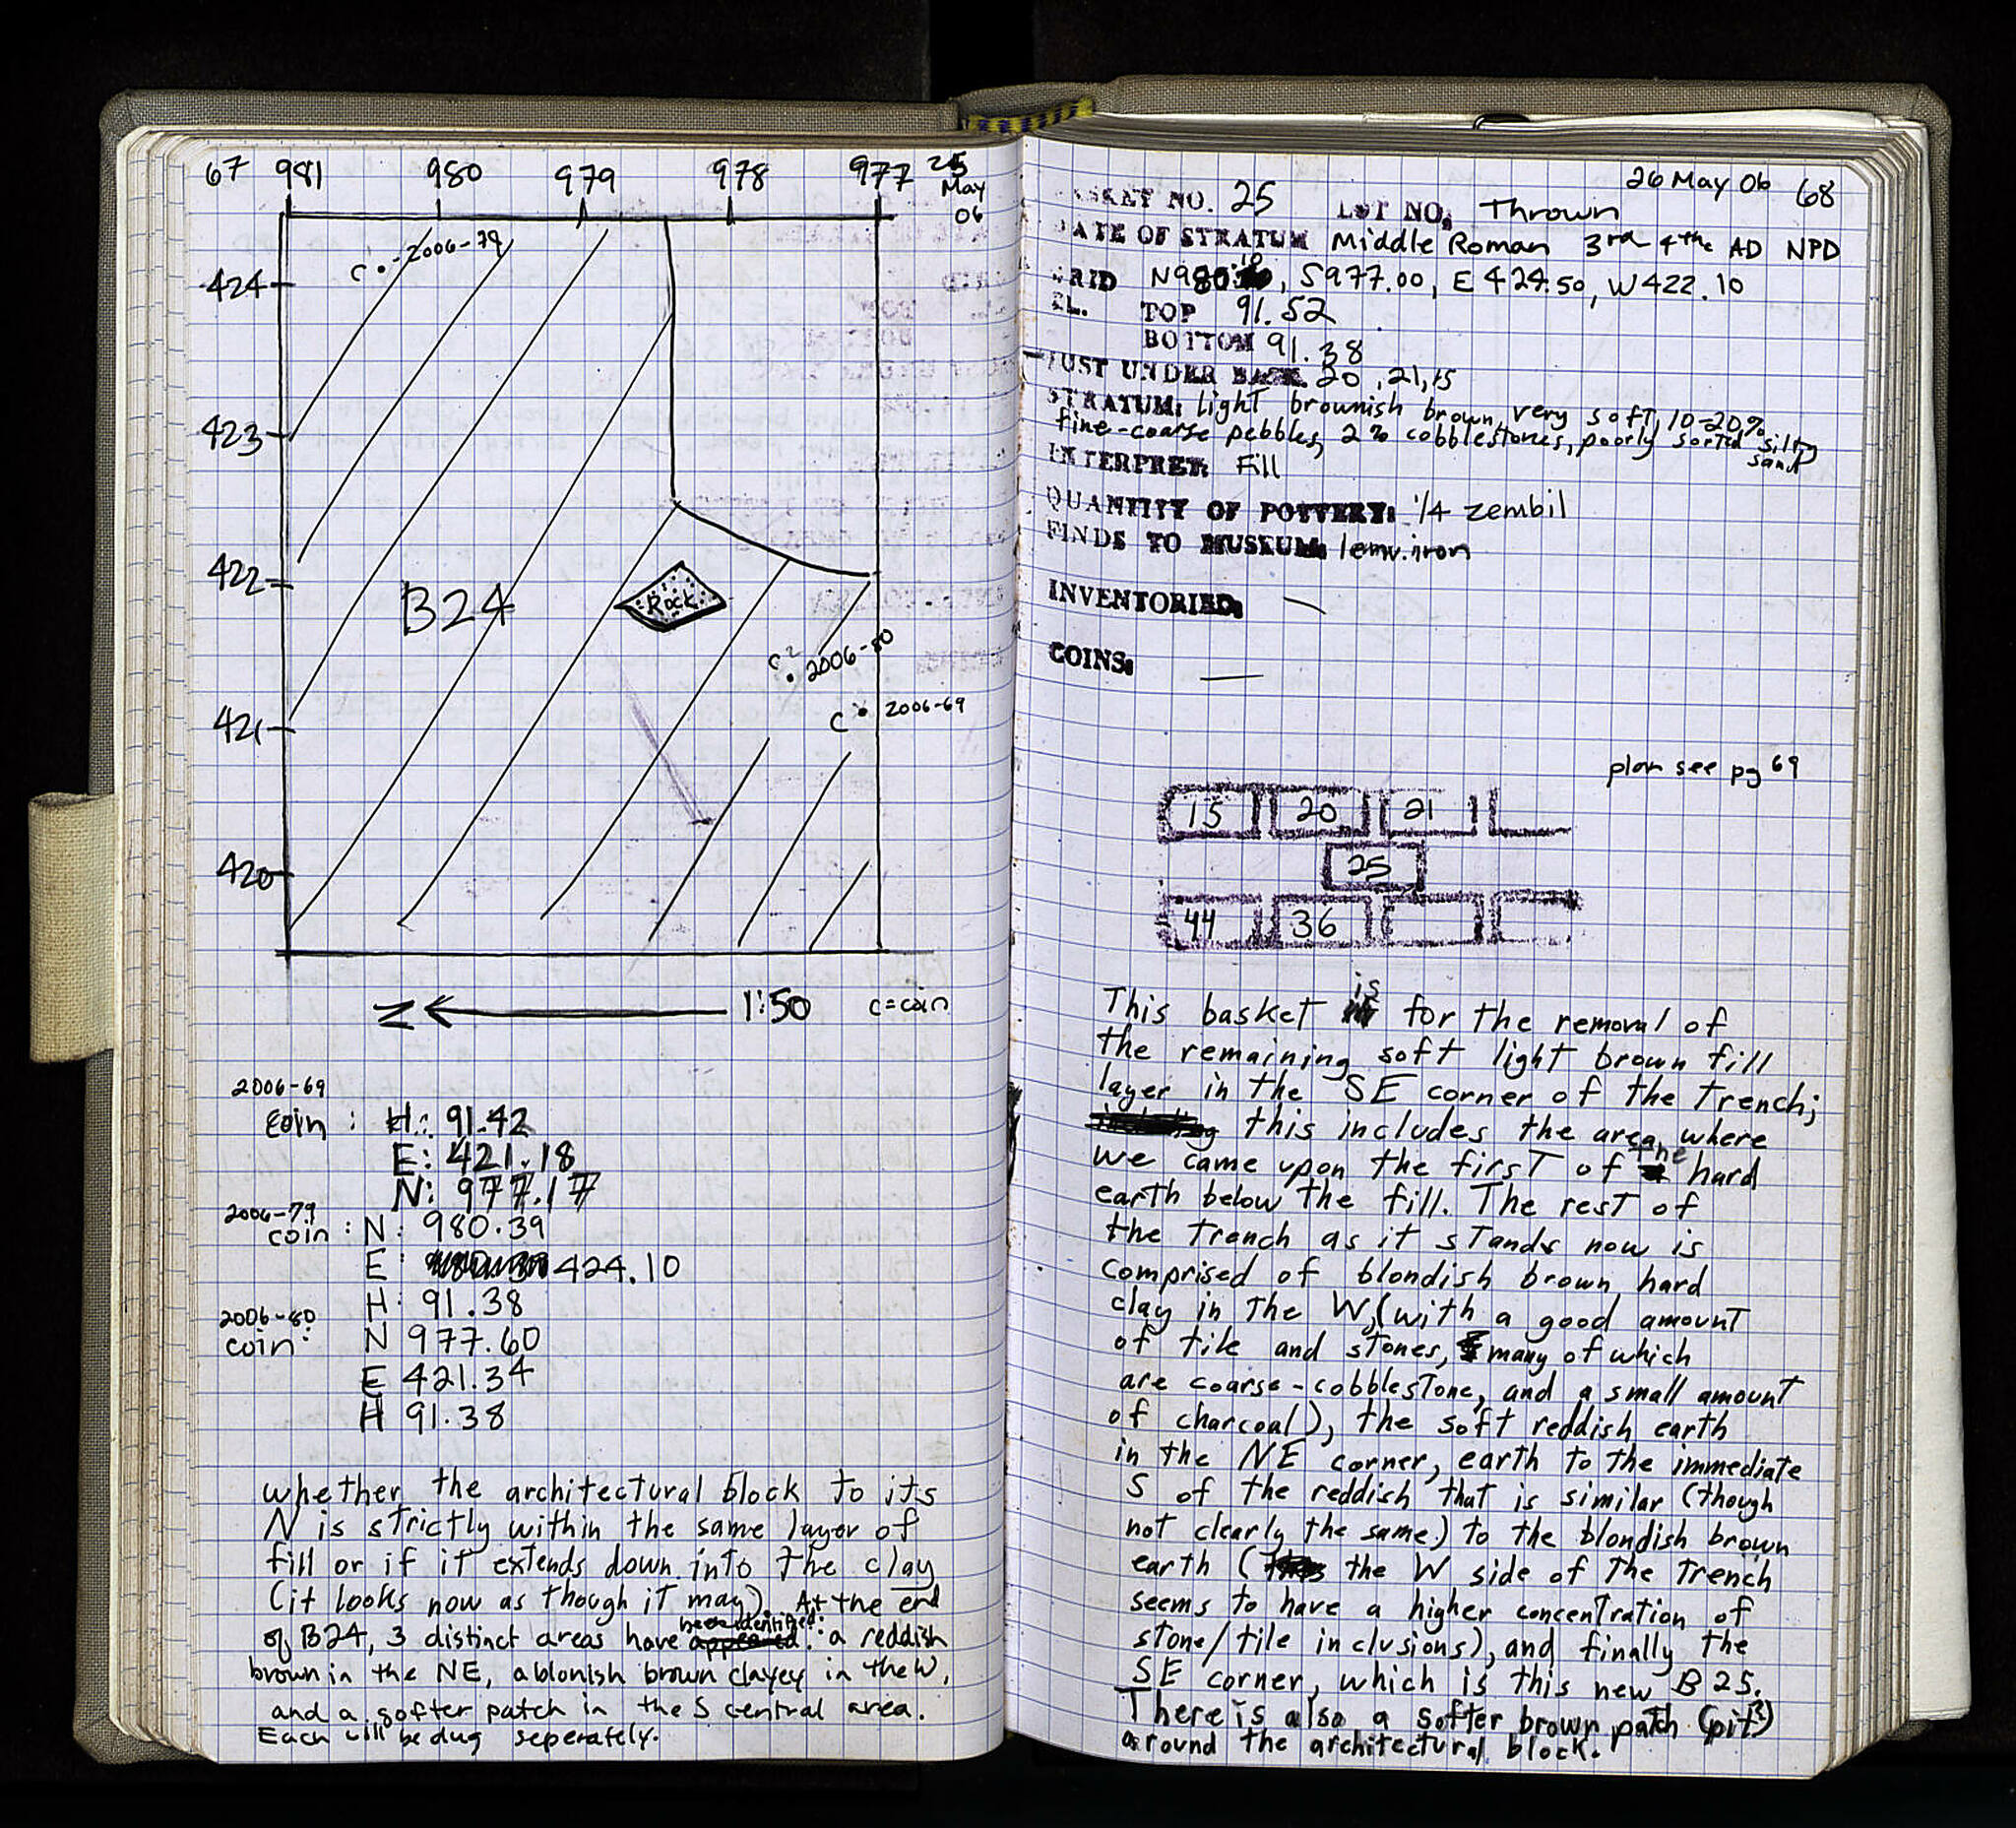 67 981 980 979 978 977 25 May 06
424
423
422
421
420
C 2006-79
B24
Rock
C2 2006-80
C 2006-69
N 1:50 c=coin
2006-69
coin : H: 91.42
E: 421.18
N: 977.17
2006-79
coin : N: 980.39
E: 424.10
H: 91.38
2006-80
coin: N 977.60
E 421.34
H 91.38
whether the architectural block to its
N is strictly within the same layer of
fill or if it extends down into the clay
(it looks now as though it may). At the end
of B24, 3 distinct areas have been identified: a reddish
brown in the NE, a blonish brown clayey in the W,
and a softer patch in the S central area.
Each will be dug seperately.
26 May 06 68
BASKET NO. 25 LOT NO. Thrown
DATE OF STRATUM Middle Roman 3rd 4th c AD NPD
GRID N980.10, S977.00, E424.50, W422.10
EL. TOP 91.52
BOTTOM 91.38
JUST UNDER BASK. 20, 21, 15
STRATUM: light brownish brown, very soft, 10-20%
fine-coarse pebbles, 2% cobblestones, poorly sorted silty
sand
INTERPRET: Fill
QUANTITY OF POTTERY: 1/4 zembil
FINDS TO MUSEUM: 1 env. iron
INVENTORIED: —
COINS: —
plan see pg 69
15 20 21
25
44 36
This basket is for the removal of
the remaining soft light brown fill
layer in the SE corner of the trench;
this includes the area where
we came upon the first of the hard
earth below the fill. The rest of
the trench as it stands now is
comprised of blondish brown hard
clay in the W, (with a good amount
of tile and stones, many of which
are coarse-cobblestone, and a small amount
of charcoal), the soft reddish earth
in the NE corner, earth to the immediate
S of the reddish that is similar (though
not clearly the same) to the blondish brown
earth (the W side of the trench
seems to have a higher concentration of
stone/tile inclusions), and finally the
SE corner, which is this new B25.
There is also a softer brown patch (pit?)
around the architectural block.